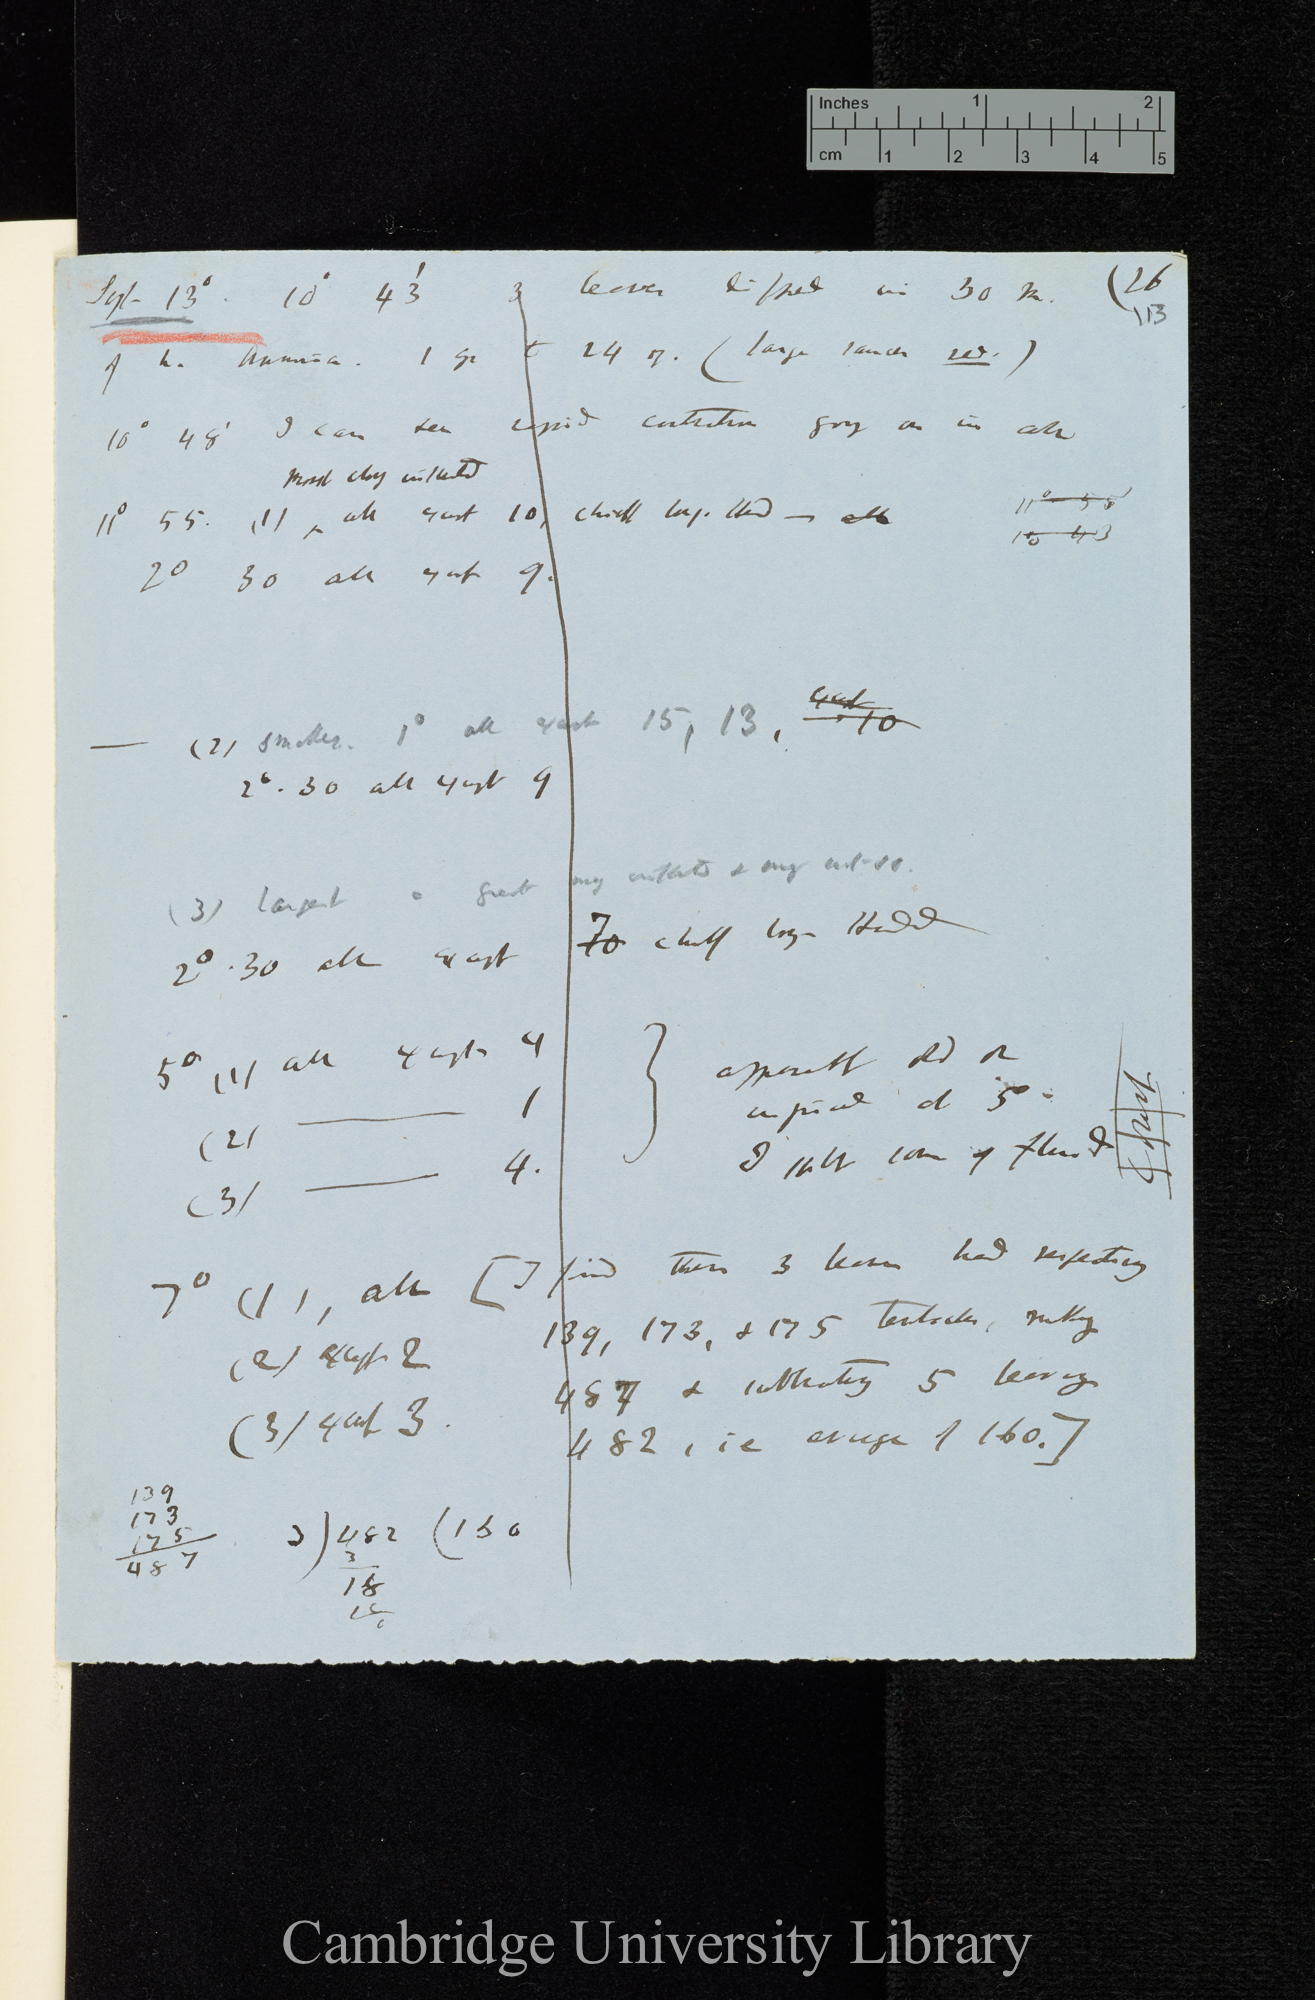 Inches 1 2
cm 1 2 3 4 5
(26
113
Sept 13° 10° 43' 3 leaves dipped in 30 m.
of Ammonia. 1 gr to 24 oz. (large saucer red.)
10° 48' I can see rapid contraction going on in all
most closely inflected
11° 55. (1) all except 10, chiefly long-headed — all
11° 55'
10 43
2° 30 all except 9.
— (2) smaller. 1° all except 15, 13, except 10
2°.30 all except 9
(3) largest a great many inflected & many not so.
2°.30 all except 7 10 chiefly long-headed
5° (1) all except 4
(2) ——— 1
(3) ——— 4.
apparently did not
inspissate at 5° -
I spilt some of fluid
7° (1), all
(2) except 2
(3) except 3.
[I find these 3 leaves had respectively
139, 173, & 175 tentacles, making
487 & subtracting 5 leaving
482, ie average of 160.]
139
173
175
487
3)482(160
3
18
18
Cambridge University Library